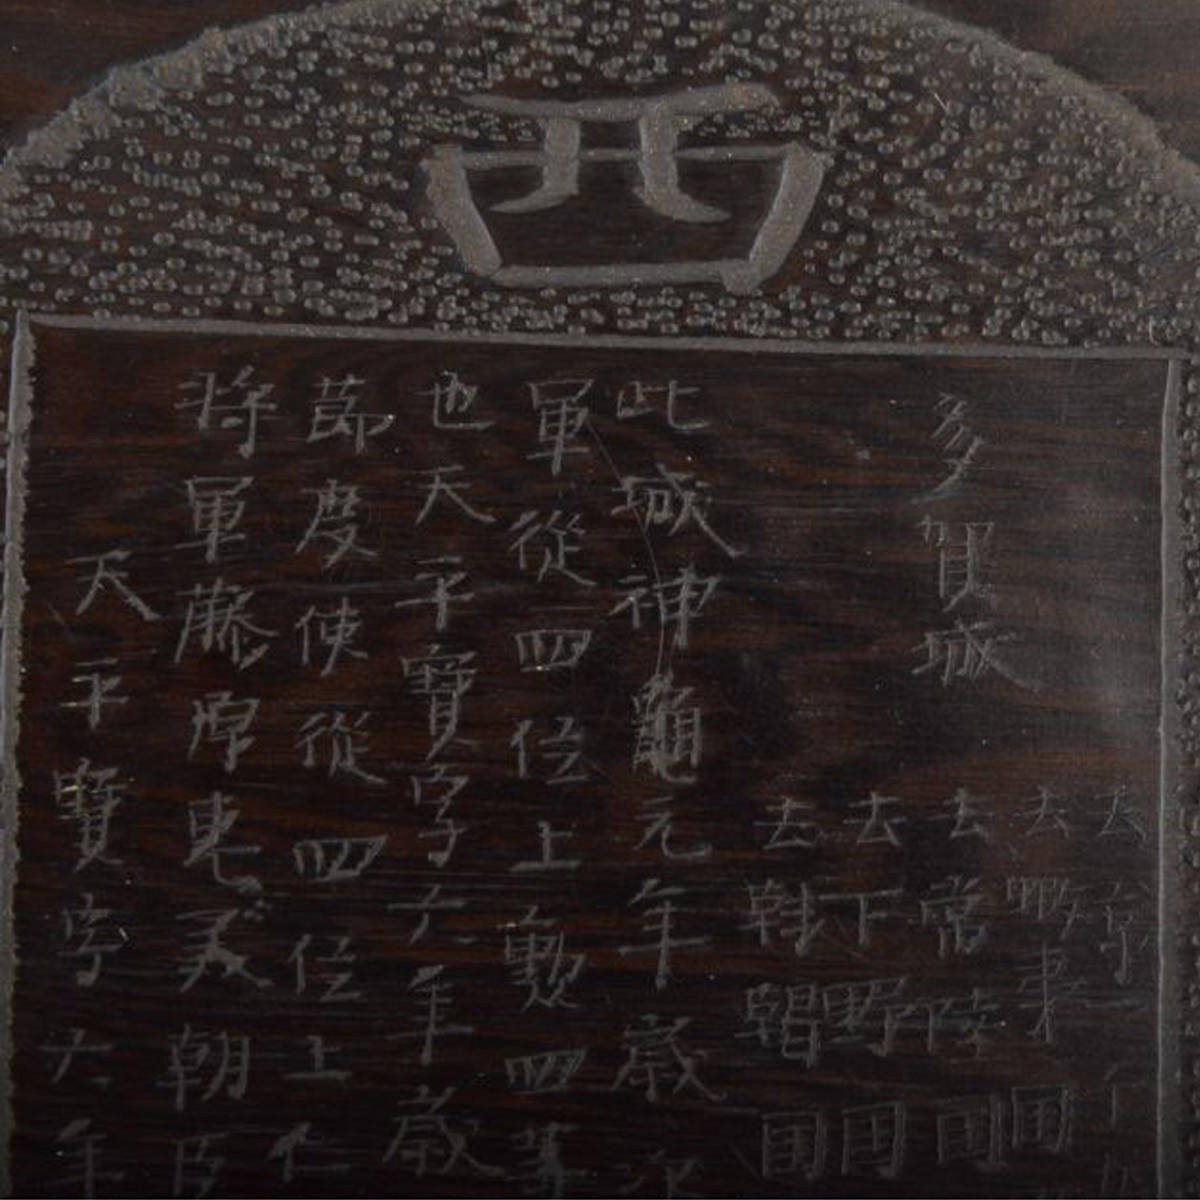 西
多賀城
去京一千
去蝦夷國
去常陸國
去下野國
去靺鞨國
此城神龜元年歳次
軍從四位上勲四等
也天平寶字六年歳
節度使從四位上仁
将軍藤原恵美朝臣
天平寶字六年